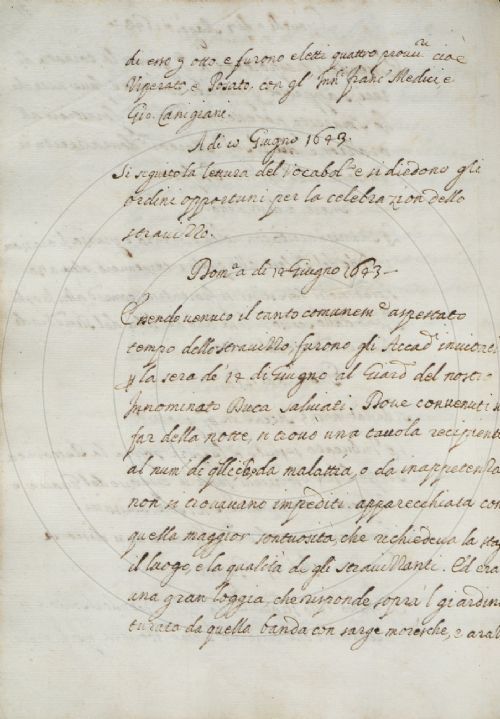 di esse 9 otto e furono eletti quattro provv.ri cioè
Riperato e Posato con gl' Inn.i Franc.o Medici e
Gio. Canigiani.
A di 10 Giugno 1643.
Si seguitò la lettura del Vocabol.o e si diedono gli
ordini opportuni per la celebrazion dello
stravizzo.
Dom.ca a di 14 Giugno 1643 –
Essendo venuto il tanto comunem.e aspettato
tempo dello stravizzo, furono gli Accad.i invitati
p la sera de' 14 di Giugno al Giard. del nostro
Innominato Duca Salviati. Dove convenuti s
far della notte, si trovò una tavola recipiente
al num.o di gll. che da malattia, o da inappetenza
non si trovavano impediti apparecchiata con
quella maggior sontuosità, che richiedeva la stag
il luogo, e la qualità de gli stravizzanti. Ed era
una gran loggia, che risponde sopra 'l giardino
turata da quella banda con sarge moresche, e aral